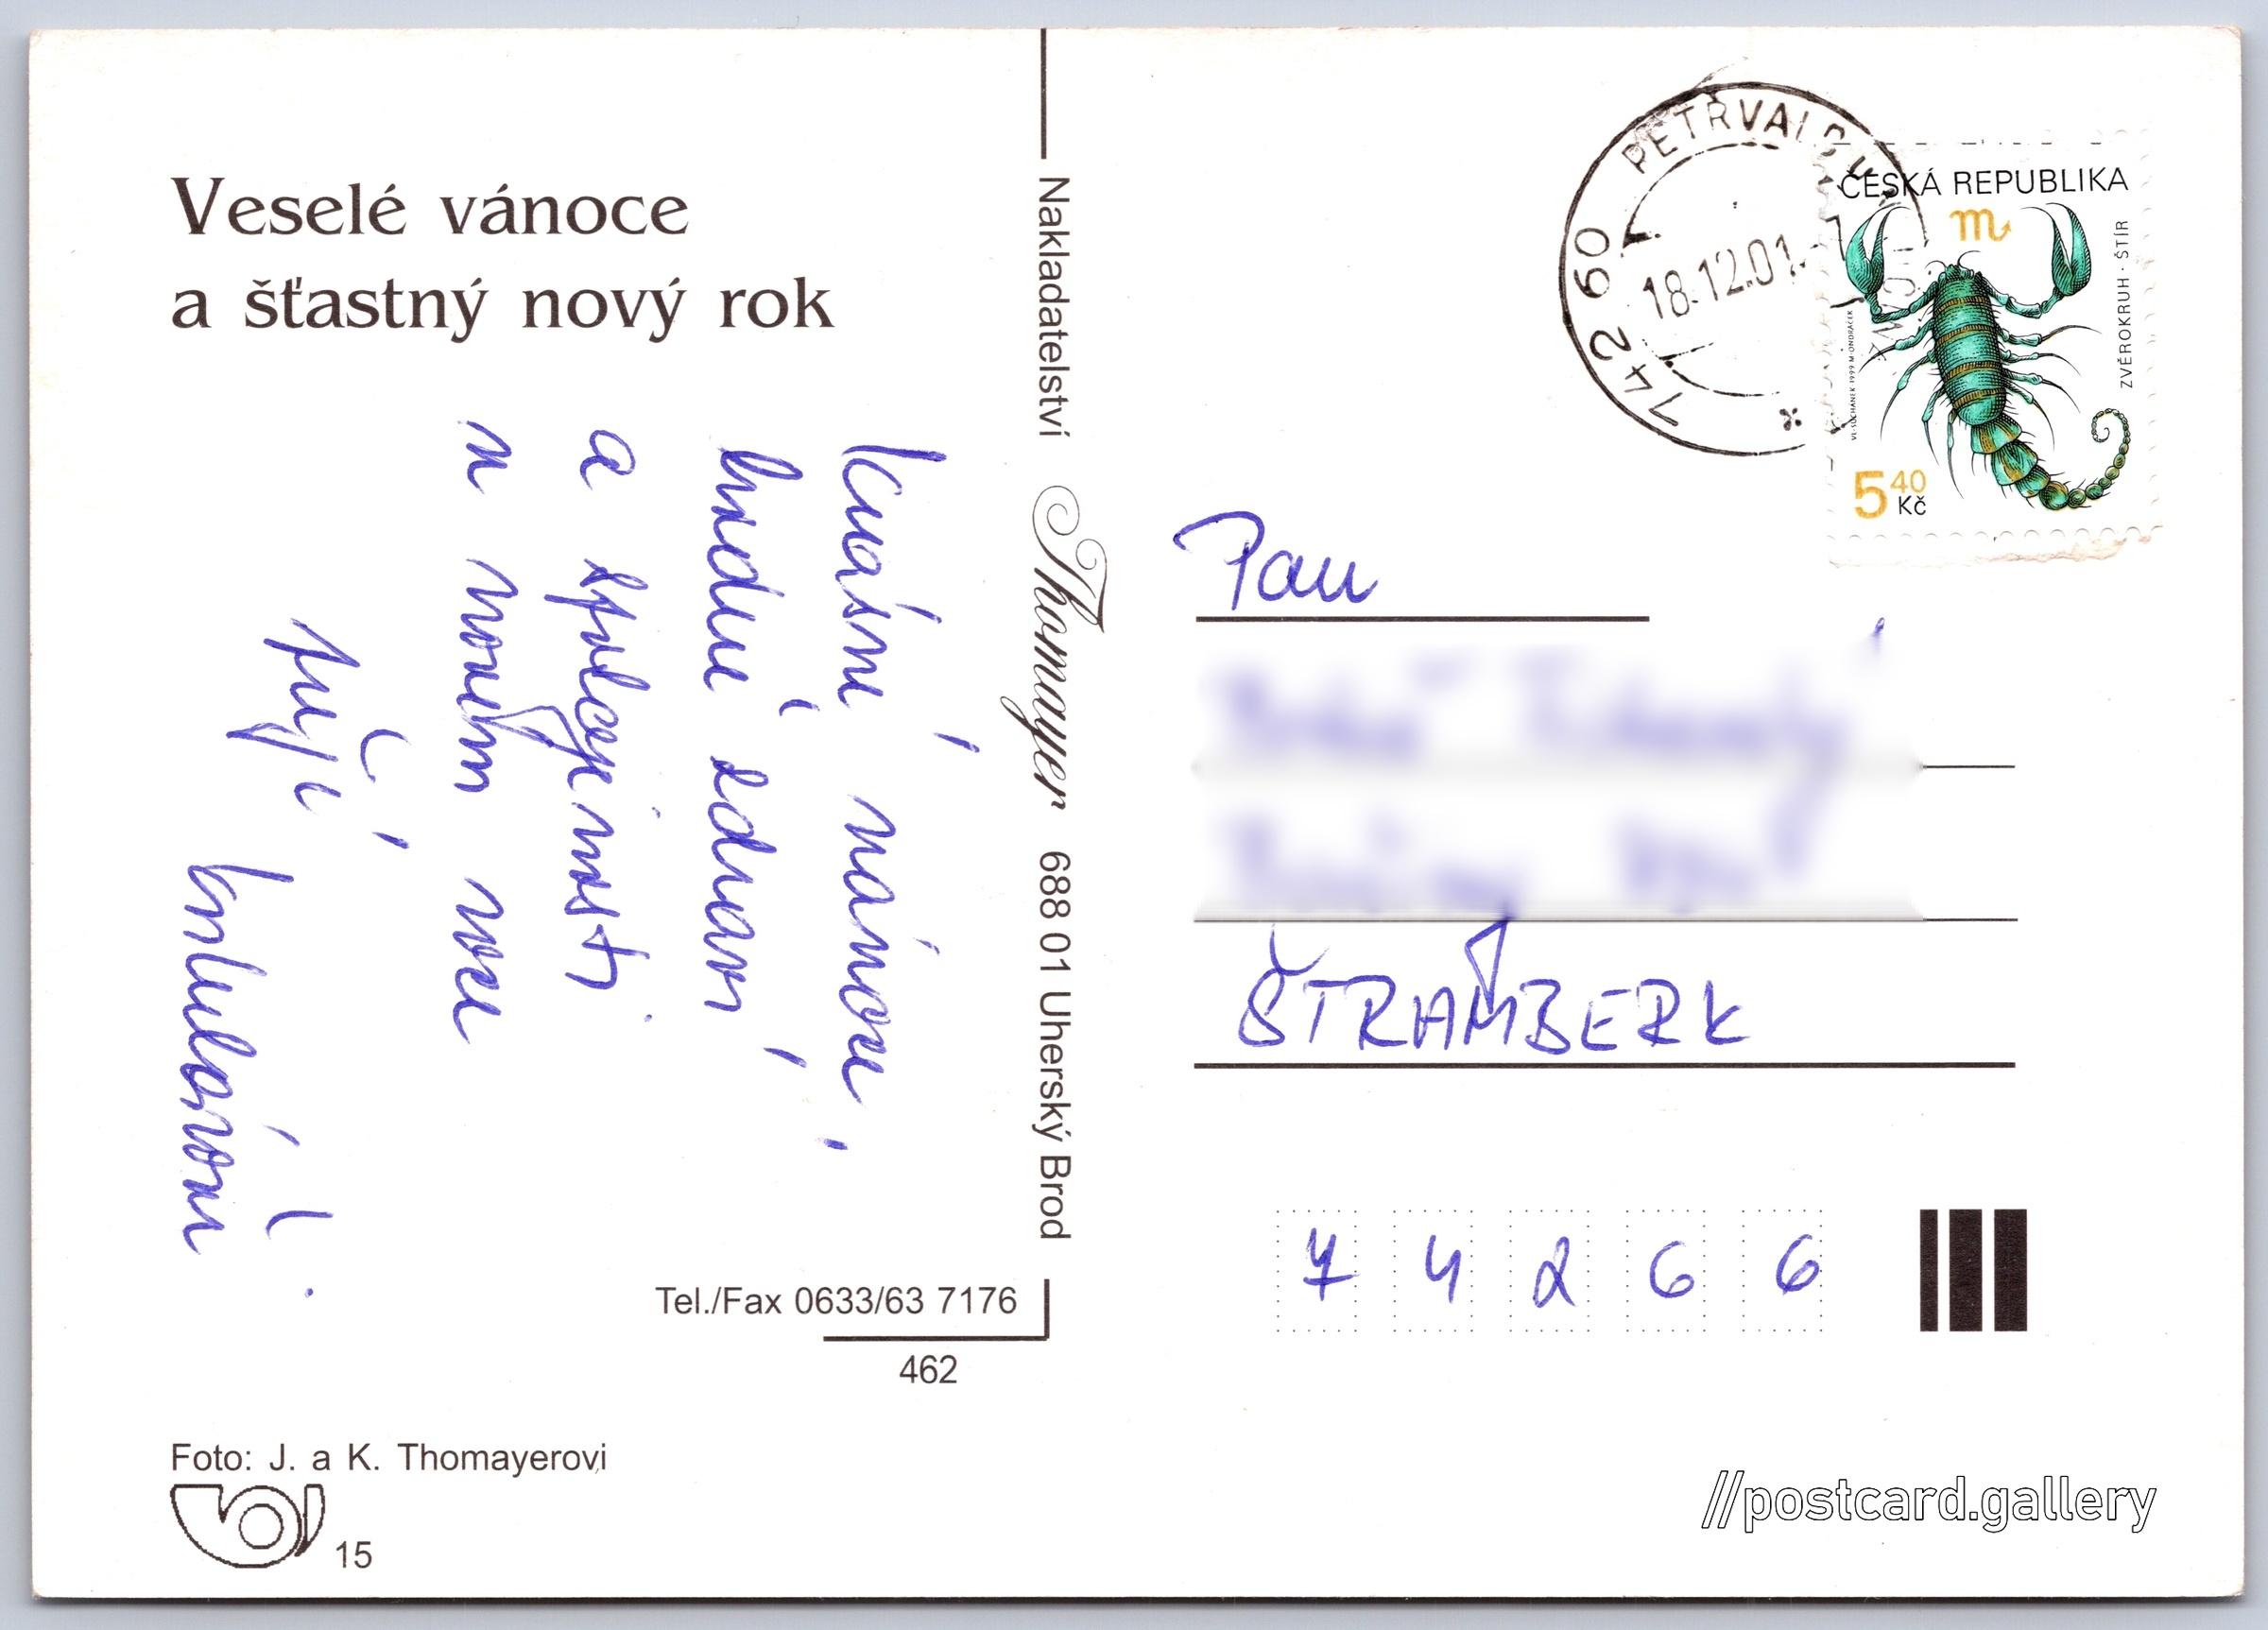 Veselé vánoce
a šťastný nový rok
Krásné vánoce,
hodně zdraví
a spokojenosti
v novém roce
přejí
Nakladatelství Thomayer 688 01 Uherský Brod
Tel./Fax 0633/63 7176
462
Foto: J. a K. Thomayerovi
15
742 60 PETŘVALD U
18.12.01
ČESKÁ REPUBLIKA
ZVĚROKRUH · ŠTÍR
VL. SUCHÁNEK 1999 M. ONDRÁČEK
5 40 Kč
Pan
ŠTRAMBERK
7 4 2 6 6
//postcard.gallery